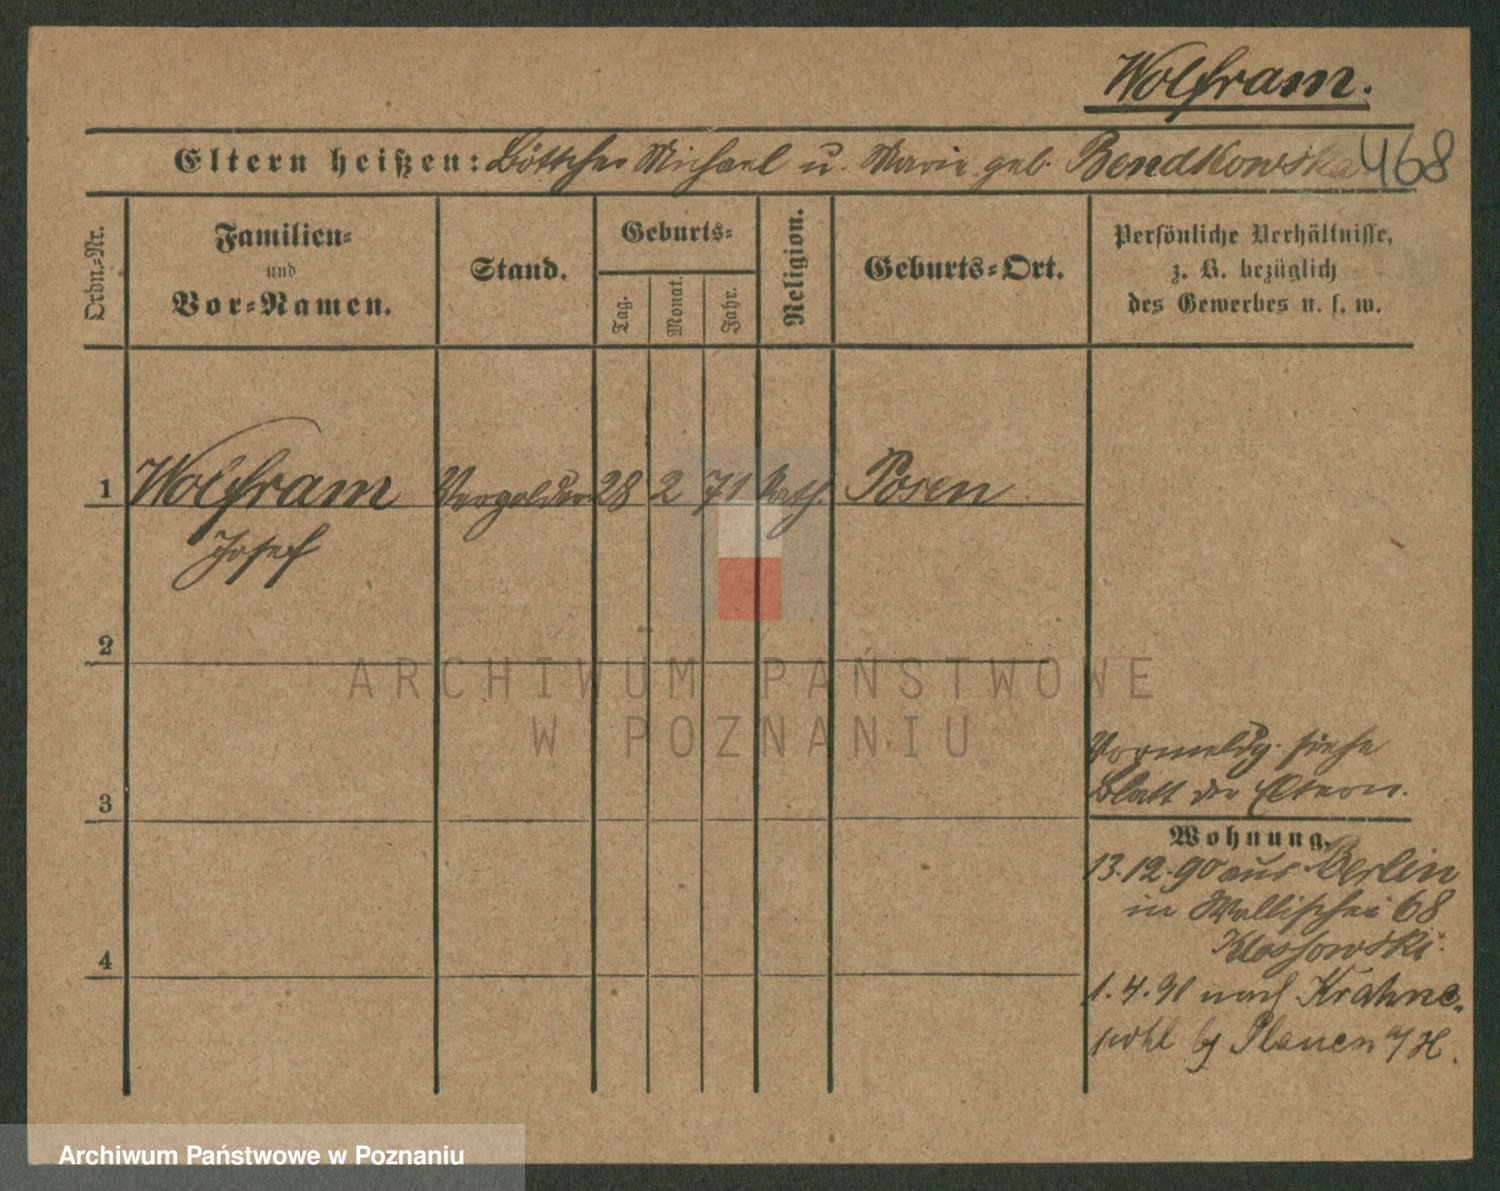 Wolfram.
Eltern heißen: Böttcher Michael u. Marie geb. Bendkowska
468
Ordn.-Nr.
Familien-
und
Vor-Namen.
Stand.
Geburts-
Tag.
Monat.
Jahr.
Religion.
Geburts-Ort.
Persönliche Verhältnisse,
z. B. bezüglich
des Gewerbes u. s. w.
1 Wolfram Vergolder 28 2 71 kath. Posen
Josef
2
3
4
Vormeldg. siehe
Blatt der Eltern.
Wohnung.
13.12.90 aus Berlin
in Wallischei 68
Klossowski.
1.4.91 nach Krähne-
pohl b/ Plauen a/H.
ARCHIWUM PAŃSTWOWE
W POZNANIU
Archiwum Państwowe w Poznaniu